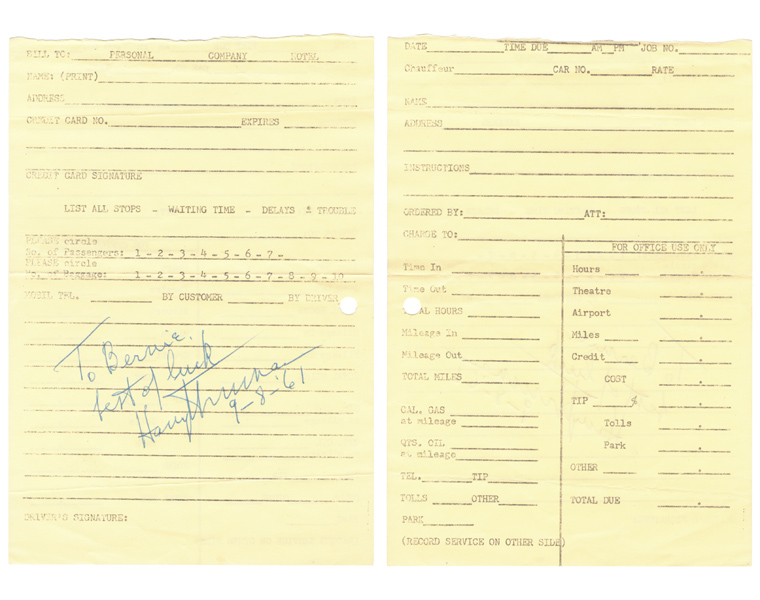 BILL TO: PERSONAL COMPANY HOTEL
NAME: (PRINT)
ADDRESS
CREDIT CARD NO. EXPIRES
CREDIT CARD SIGNATURE
LIST ALL STOPS - WAITING TIME - DELAYS & TROUBLE
PLEASE circle
No. of Passengers: 1-2-3-4-5-6-7-
PLEASE circle
No. of Baggage: 1-2-3-4-5-6-7-8-9-10
MOBIL TEL. BY CUSTOMER BY DRIVER
To Bernie,
best of luck
Harry Truman
9-8-61
DRIVER'S SIGNATURE:
DATE TIME DUE AM PM JOB NO.
Chauffeur CAR NO. RATE
NAME
ADDRESS
INSTRUCTIONS
ORDERED BY: ATT:
CHARGE TO:
FOR OFFICE USE ONLY
Time In
Time Out
TOTAL HOURS
Mileage In
Mileage Out
TOTAL MILES
CAL. GAS
at mileage
QTS. OIL
at mileage
TEL. TIP
TOLLS OTHER
PARK
(RECORD SERVICE ON OTHER SIDE)
Hours .
Theatre .
Airport .
Miles .
Credit .
COST .
TIP % .
Tolls .
Park .
OTHER .
TOTAL DUE .